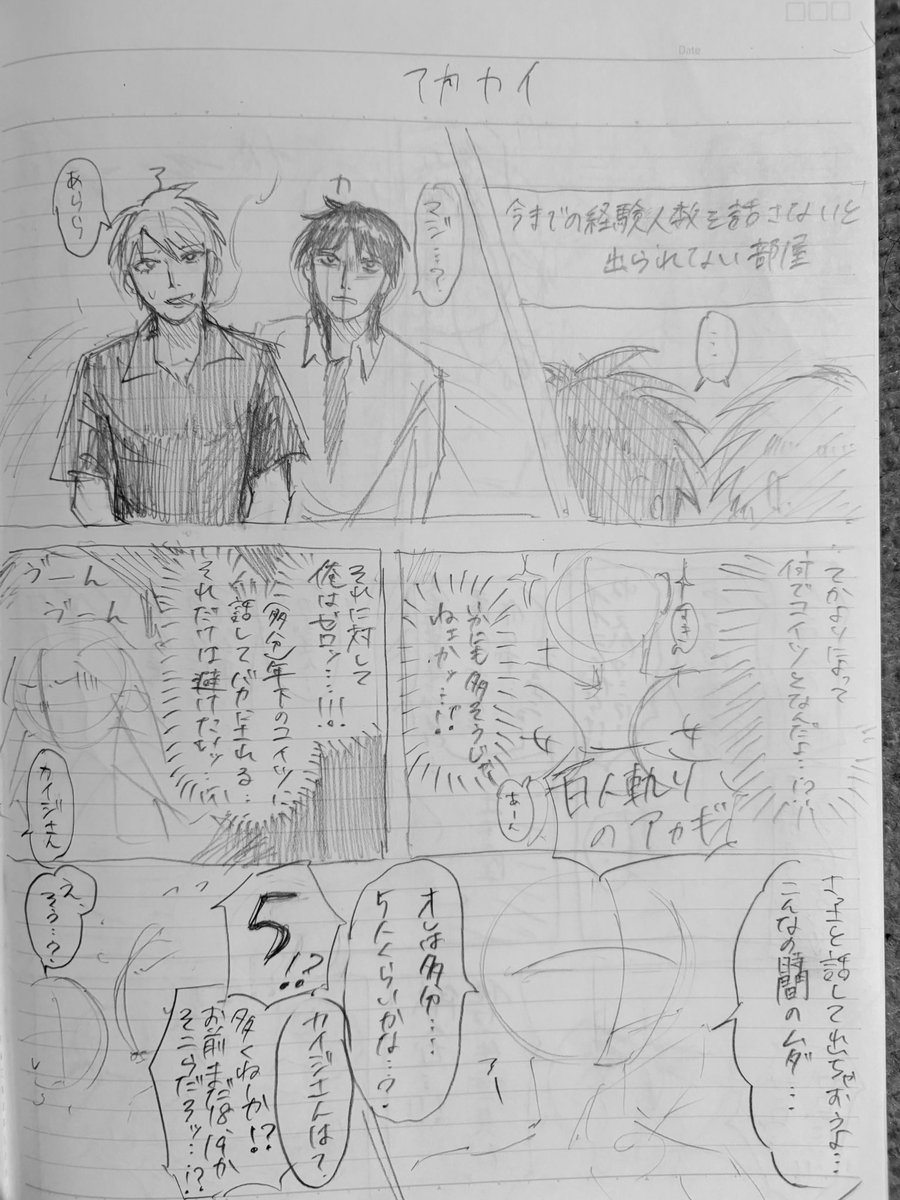 Date
アカカイ
今までの経験人数を話さないと
出られない部屋
…
マジ…?
カ
ア
あらら
てかよりによって
何でコイツとなんだよ…!?
百人斬り
のアカギ
いかにも多そうじゃ
ねェかッ…!!
あーん
それに対して
俺はゼロッ…!!!
(多分)年下のコイツに
話してバカにされる…
それだけは避けたいッ…
ゔーん
ゔーん
カイジさん
さっさと話して出ちゃおうよ…
こんなの時間のムダ…
オレは多分…
5人くらいかな…?
カイジさんは?
5!?
多くねーか!?
お前まだ18,19か
そこらだろッ…!?
え、
そう…?